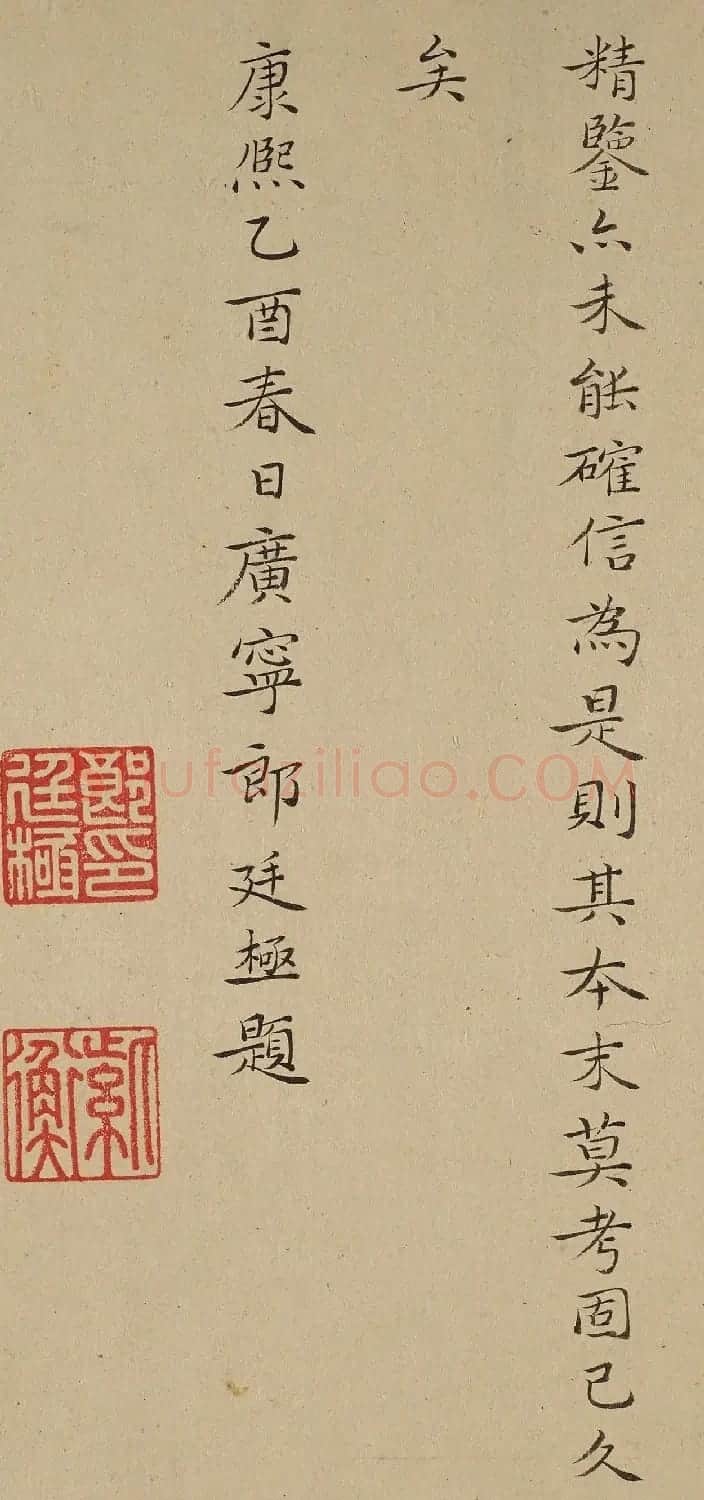 精鑒亦未能確信為是則其夲末莫考固已久
矣
康熙乙酉春日廣寧郎廷極題
郎印廷極
紫衡
ufaziliao.COM